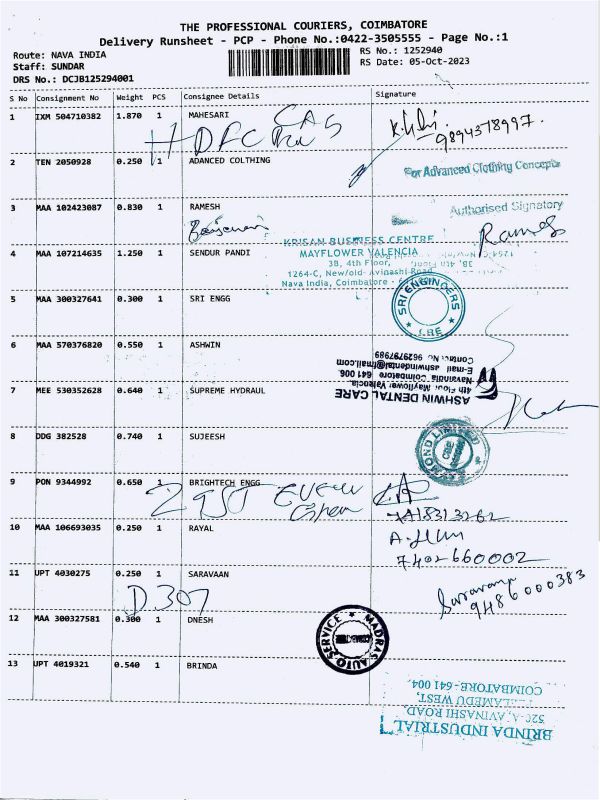 THE PROFESSIONAL COURIERS, COIMBATORE
Delivery Runsheet - PCP - Phone No.:0422-3505555 - Page No.:1
Route: NAVA INDIA
Staff: SUNDAR
DRS No.: DCJB125294001
RS No.: 1252940
RS Date: 05-Oct-2023
S No Consignment No Weight PCS Consignee Details Signature
1 IXM 504710382 1.870 1 MAHESARI
HDFC
9894378997.
2 TEN 2050928 0.250 1 ADANCED COLTHING
For Advanced Clothing Concepts
Authorised Signatory
3 MAA 102423087 0.830 1 RAMESH
Rames
4 MAA 107214635 1.250 1 SENDUR PANDI
KRISAN BUSINESS CENTRE
MAYFLOWER VALENCIA
3B, 4th Floor,
1264-C, New/old- Avinashi Road
Nava India, Coimbatore -
5 MAA 300327641 0.300 1 SRI ENGG
SRI ENGINEERS
CBE
6 MAA 570376820 0.550 1 ASHWIN
ASHWIN DENTAL CARE
4th Floor, Mayflower Valencia,
Navaindia, Coimbatore 641 006.
E-mail ashwindental@gmail.com
Contact No 9629797989
7 MEE 530352628 0.640 1 SUPREME HYDRAUL
8 DDG 382528 0.740 1 SUJEESH
LIMITED
9 PON 9344992 0.650 1 BRIGHTECH ENGG
10 MAA 106693035 0.250 1 RAYAL
7402660002
11 UPT 4030275 0.250 1 SARAVAAN
D.307
Saravana
9486000383
12 MAA 300327581 0.300 1 DNESH
MADRAS AUTO SERVICE
13 UPT 4019321 0.540 1 BRINDA
BRINDA INDUSTRIAL
AVINASHI ROAD,
WEST,
COIMBATORE-641 004.